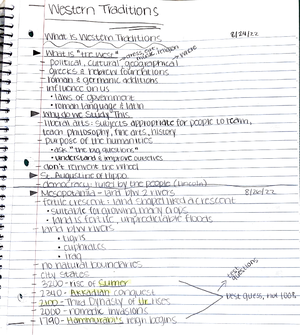 Western Traditions
What is Western Traditions
8/24/22
What is "the West"
political, cultural, geographical
greeks & hebrew foundations
roman & germanic additions
influence on us
laws of government
roman language & latin
Why do we Study This
liberal arts: subjects appropriate for people to learn,
teach philosophy, fine arts, history
purpose of the humanities
ask "the big questions"
understand & improve ourselves
don't reinvent the wheel
St. Augustine of Hippo
democracy: ruled by the people (Lincoln)
Mesopotamia - land b/w 2 rivers
fertile crescent: land shaped like a crescent
suitable for growing many crops
land is fertile, unpredictable floods
land b/w rivers
tigris
euphrates
iraq
no natural boundaries
city states
3200 - rise of Sumer
2340 - Akkadian conquest
2100 - Third Dynasty of Ur rises
2000 - nomadic invasions
1790 - Hammurabi's reign begins
best guess, not 100%